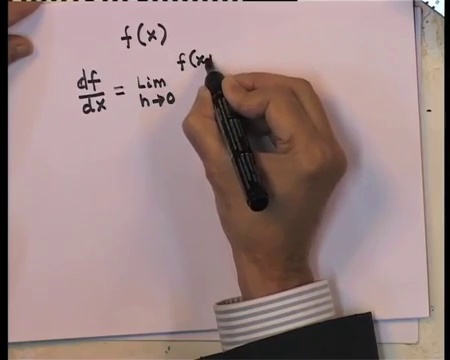 f(x)
df/dx = Lim h→0 f(x